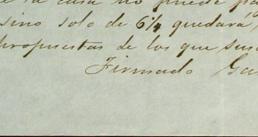 la casa no puede
sino solo de 6¼ quedará
propuestas de los que sus
Firmado Ga